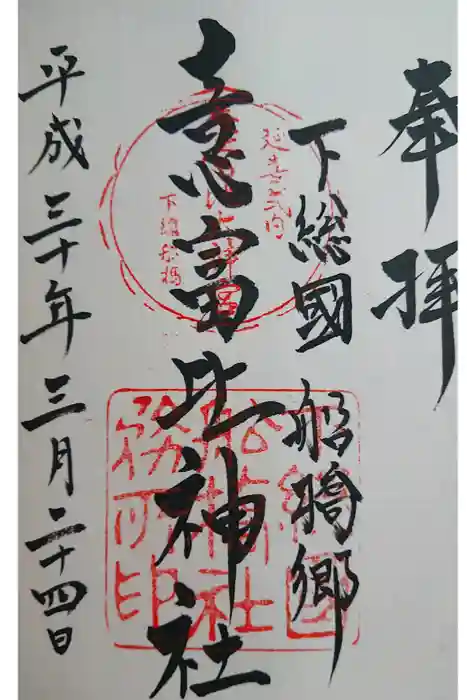 奉拝
下総國 船橋郷
意富比神社
平成三十年三月二十四日
延喜式内
下総船橋